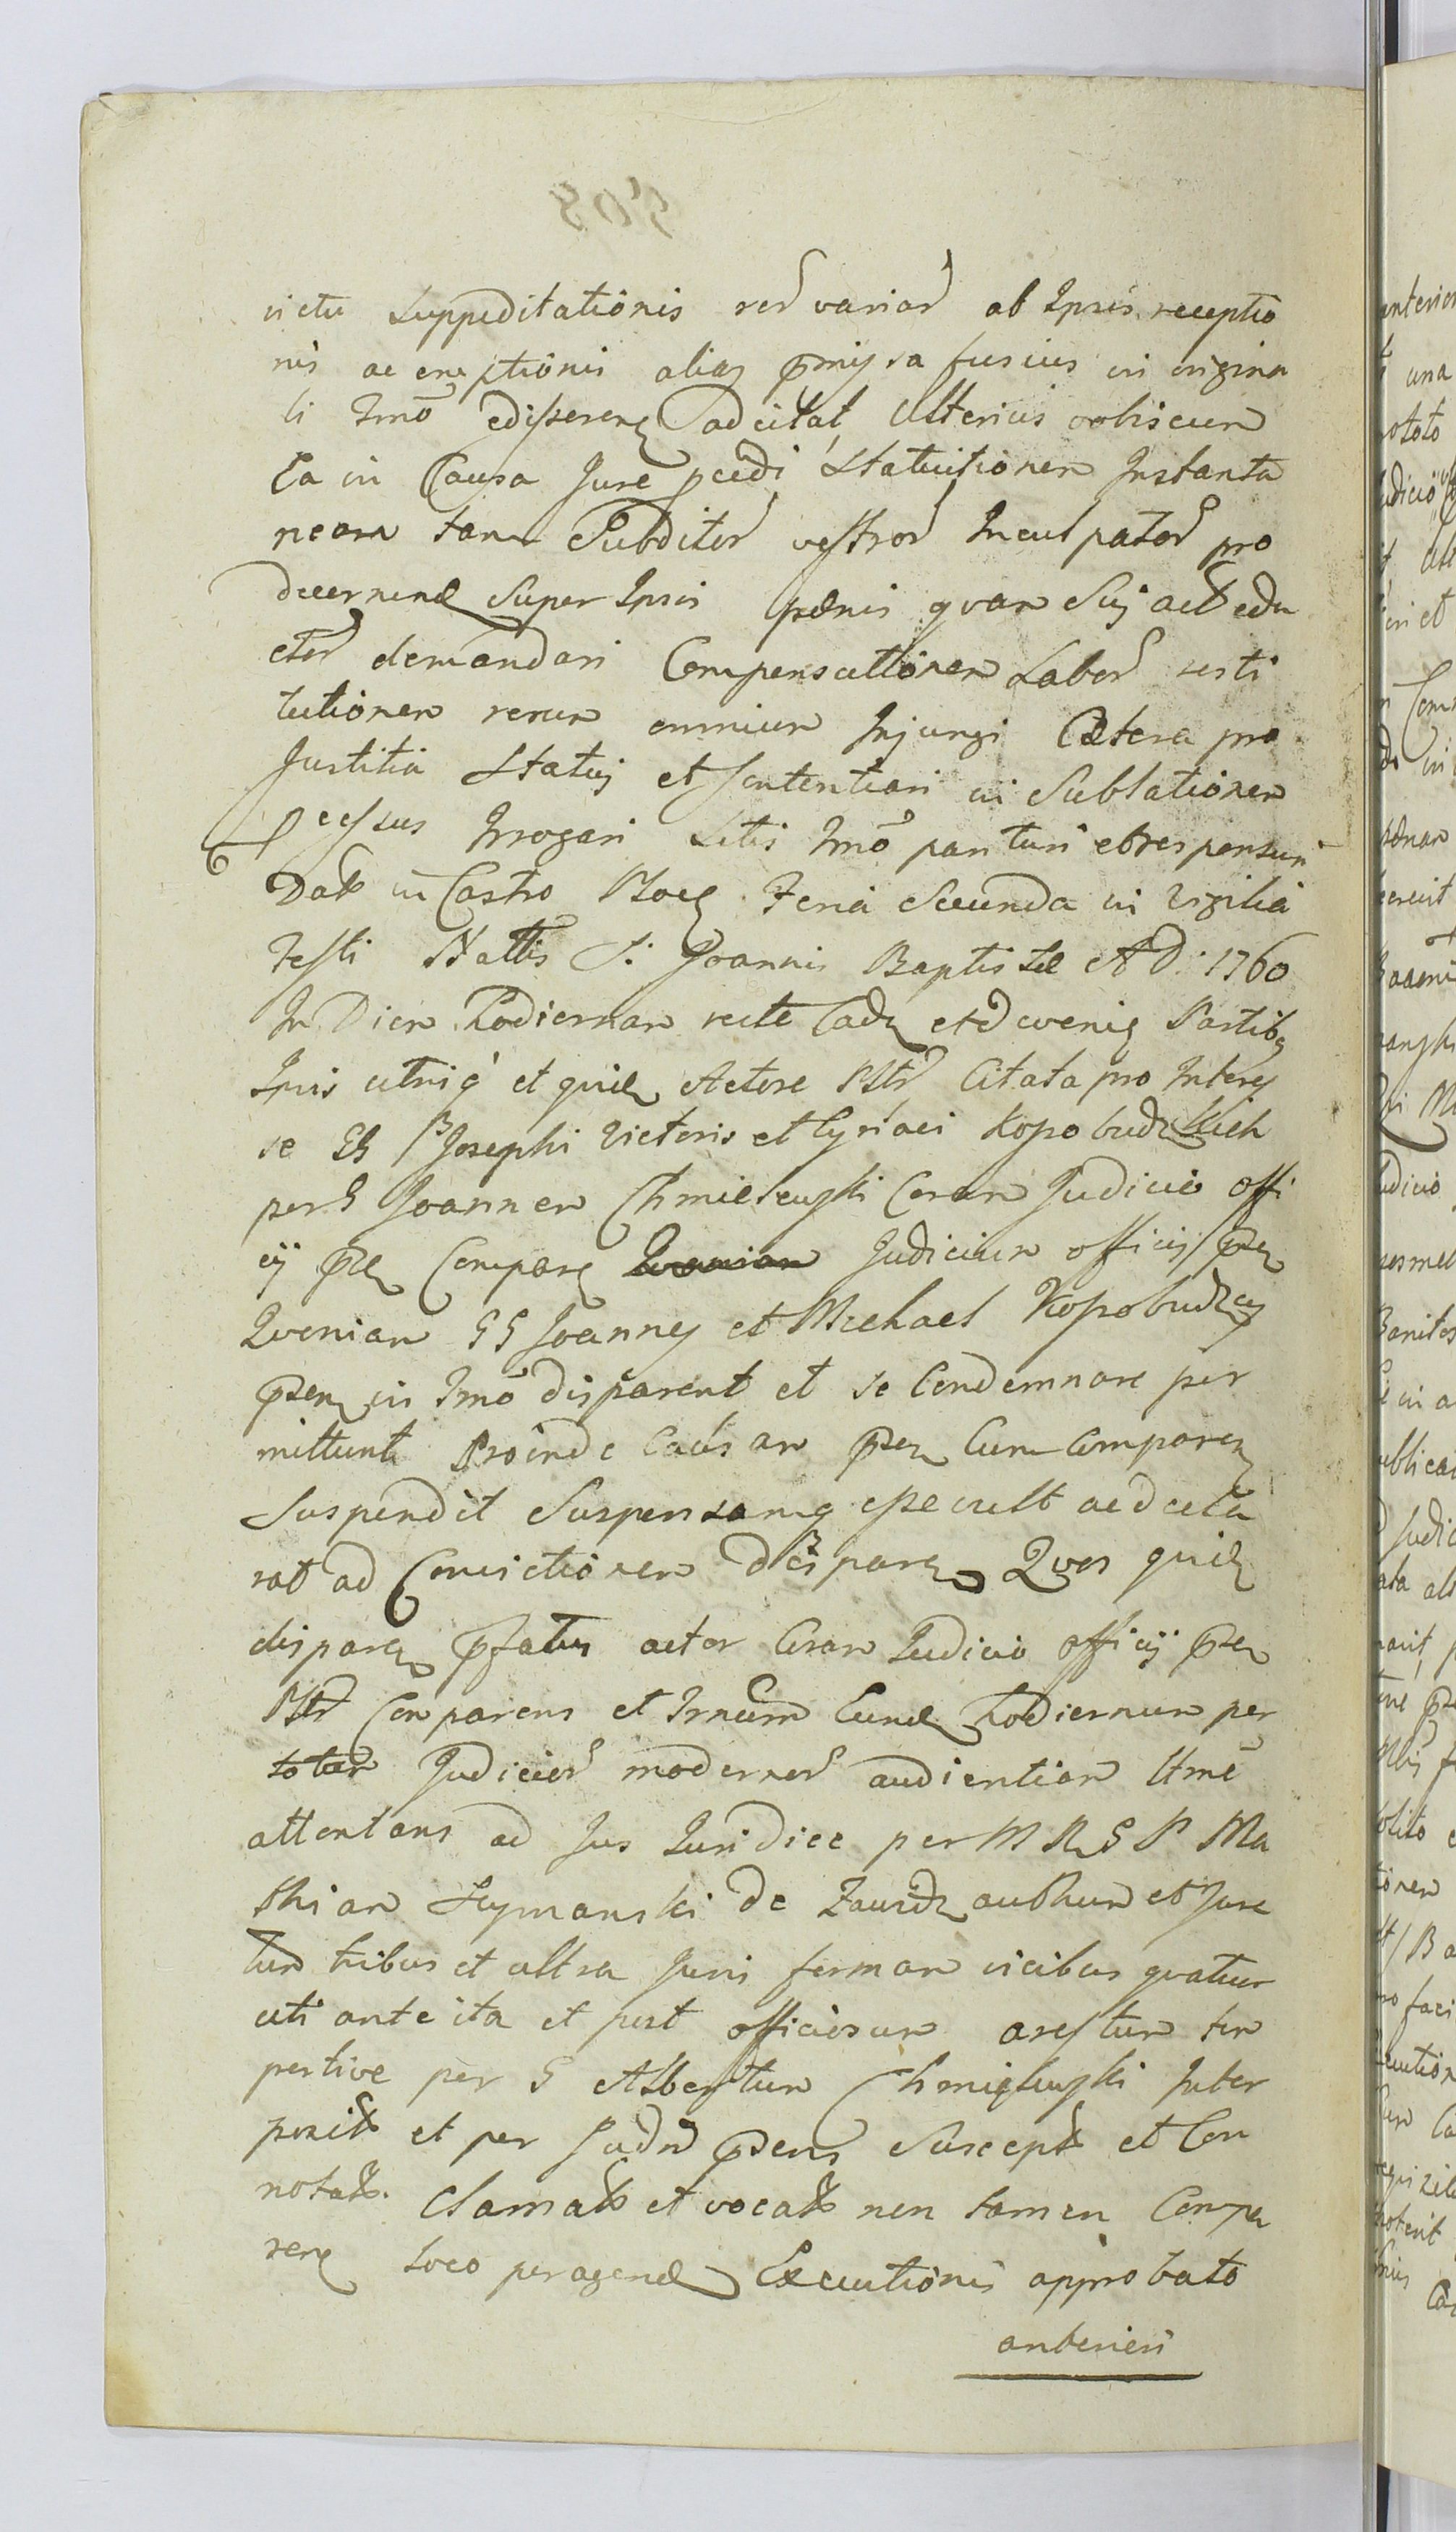 victu Suppeditationis rer variar ab Ipsis receptio
nis ac emptionis alias pmissa fusius in origina
li Tmo edisseren adcitat Ulterius vobiscum
Ea in Causa Jure pcedi Statuitionem Instanta
neam tam Subditor vestror Inculpator pro
decernend Super Ipsis pænis quam Suj act edu
ctor demandari Compensationem Labor resti
tutionem rerum omnium Injungi Cætera pro
Justitia Statuj et sententiari in Sublationem
pcessus Irrogari Litis Tmo parituri et responsuri
Dat in Castro Feria Secunda in Vigilia
Festi Nattis S. Joannis Baptistæ A D: 1760
In Diem Hodiernam recte Cad et dveni Partibq
Ipsis utriq et quid Actore Citata pro Interes
se Josephi Victoris et Cyriaci Kopobudzkich
per G Joannem Chmielewski Coram Judicio offi
cij Compare Judicium officij
Quoniam GG Joannes et Michael Kopobudzcy
in Tmo disparent et se Condemnare per
mittunt Proinde Causam Cum Comparen
Suspendit Suspensamq esse vult ac decla
rat ad Convictionem disparen Quos quid
disparen pfatus actor Coram Judicio officij
Comparens et Trnum Eund hodiernum per
totam Judicior modernor audientiam Ltme
attentans ad Jus Juridice per M R G P Ma
thiam Szymanski de authum et Jura
tum tribus et ultra Juris formam vicibus quatuor
uti ante ita et post officiosum arestum tem
pestive per G Albertum Chmielewski Inter
posit et per Jud Suscept et Con
notat. Clamat et vocat non tamen Compa
ren loco peragend Executionis approbato
anterieri